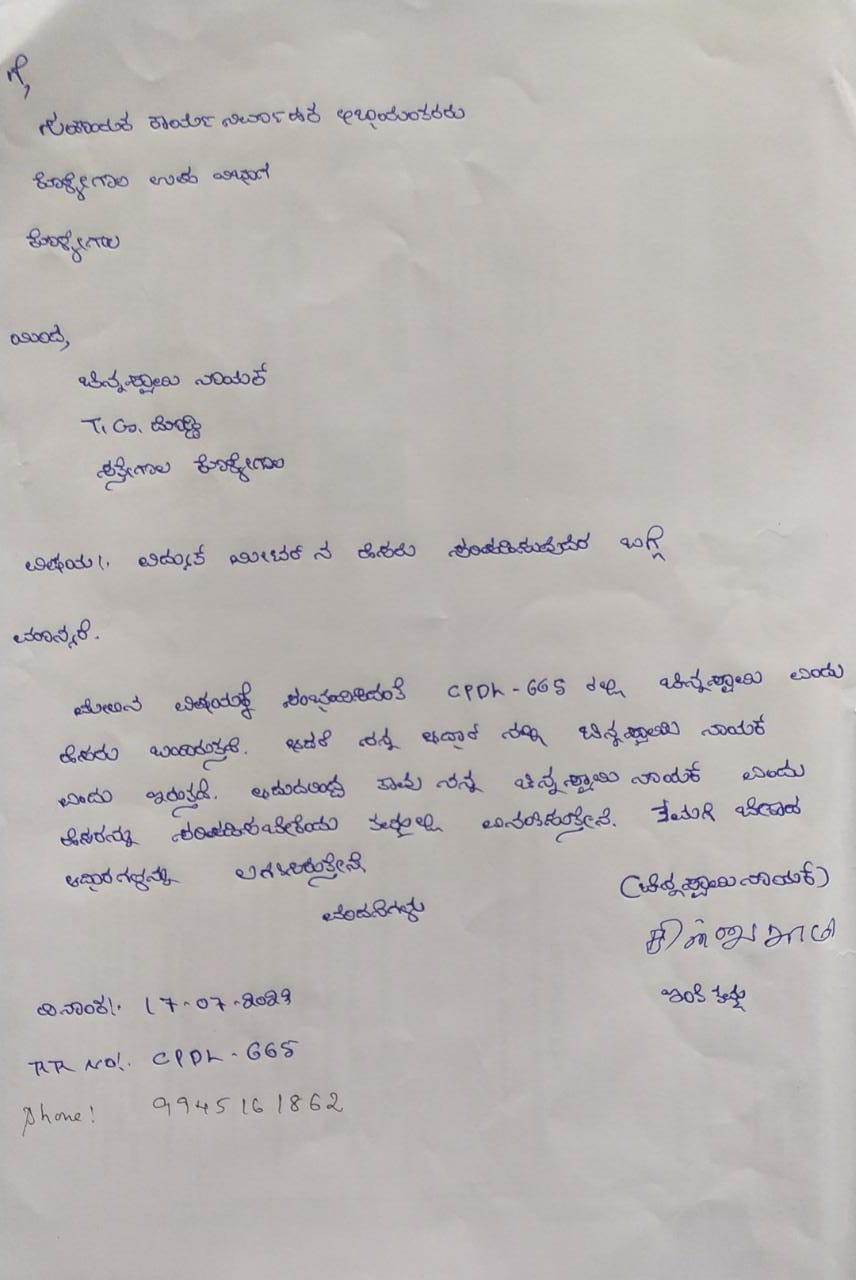 ಗೆ,
ಸಹಾಯಕ ಕಾರ್ಯ ನಿರ್ವಾಹಕ ಅಭಿಯಂತರರು
ಕೊಳ್ಳೇಗಾಲ ಉಪ ವಿಭಾಗ
ಕೊಳ್ಳೇಗಾಲ
ಯಿಂದ,
ಚಿನ್ನಸ್ವಾಮಿ ನಾಯಕ್
T. G. ದೊಡ್ಡಿ
ಸತ್ತೇಗಾಲ ಕೊಳ್ಳೇಗಾಲ
ವಿಷಯ:. ವಿದ್ಯುತ್ ಮೀಟರ್ ನ ಹೆಸರು ಸರಿಪಡಿಸುವುದರ ಬಗ್ಗೆ
ಮಾನ್ಯರೆ.
ಮೇಲಿನ ವಿಷಯಕ್ಕೆ ಸಂಭಂದಿಸಿದಂತೆ CPDL-665 ರಲ್ಲಿ ಚಿನ್ನಸ್ವಾಮಿ ಎಂದು
ಹೆಸರು ಬಂದಿರುತ್ತದೆ. ಆದರೆ ನನ್ನ ಆಧಾರ್ ನಲ್ಲಿ ಚಿನ್ನಸ್ವಾಮಿ ನಾಯಕ
ಎಂದು ಇರುತ್ತದೆ. ಆದುದರಿಂದ ತಾವು ನನ್ನ ಚಿನ್ನಸ್ವಾಮಿ ನಾಯಕ್ ಎಂದು
ಹೆಸರನ್ನು ಸರಿಪಡಿಸಬೇಕೆಂದು ತಮ್ಮಲ್ಲಿ ವಿನಂತಿಸುತ್ತೇನೆ. ತಮಗೆ ಬೇಕಾದ
ಆಧಾರಗಳನ್ನು ಲಗತ್ತಿಸಿರುತ್ತೇನೆ
ವಂದನೆಗಳು
(ಚಿನ್ನಸ್ವಾಮಿ ನಾಯಕ್)
ಇಂತಿ ತಮ್ಮ
ದಿನಾಂಕ:. 17-07-2021
RR NO:. CPDL-665
Phone: 9945161862